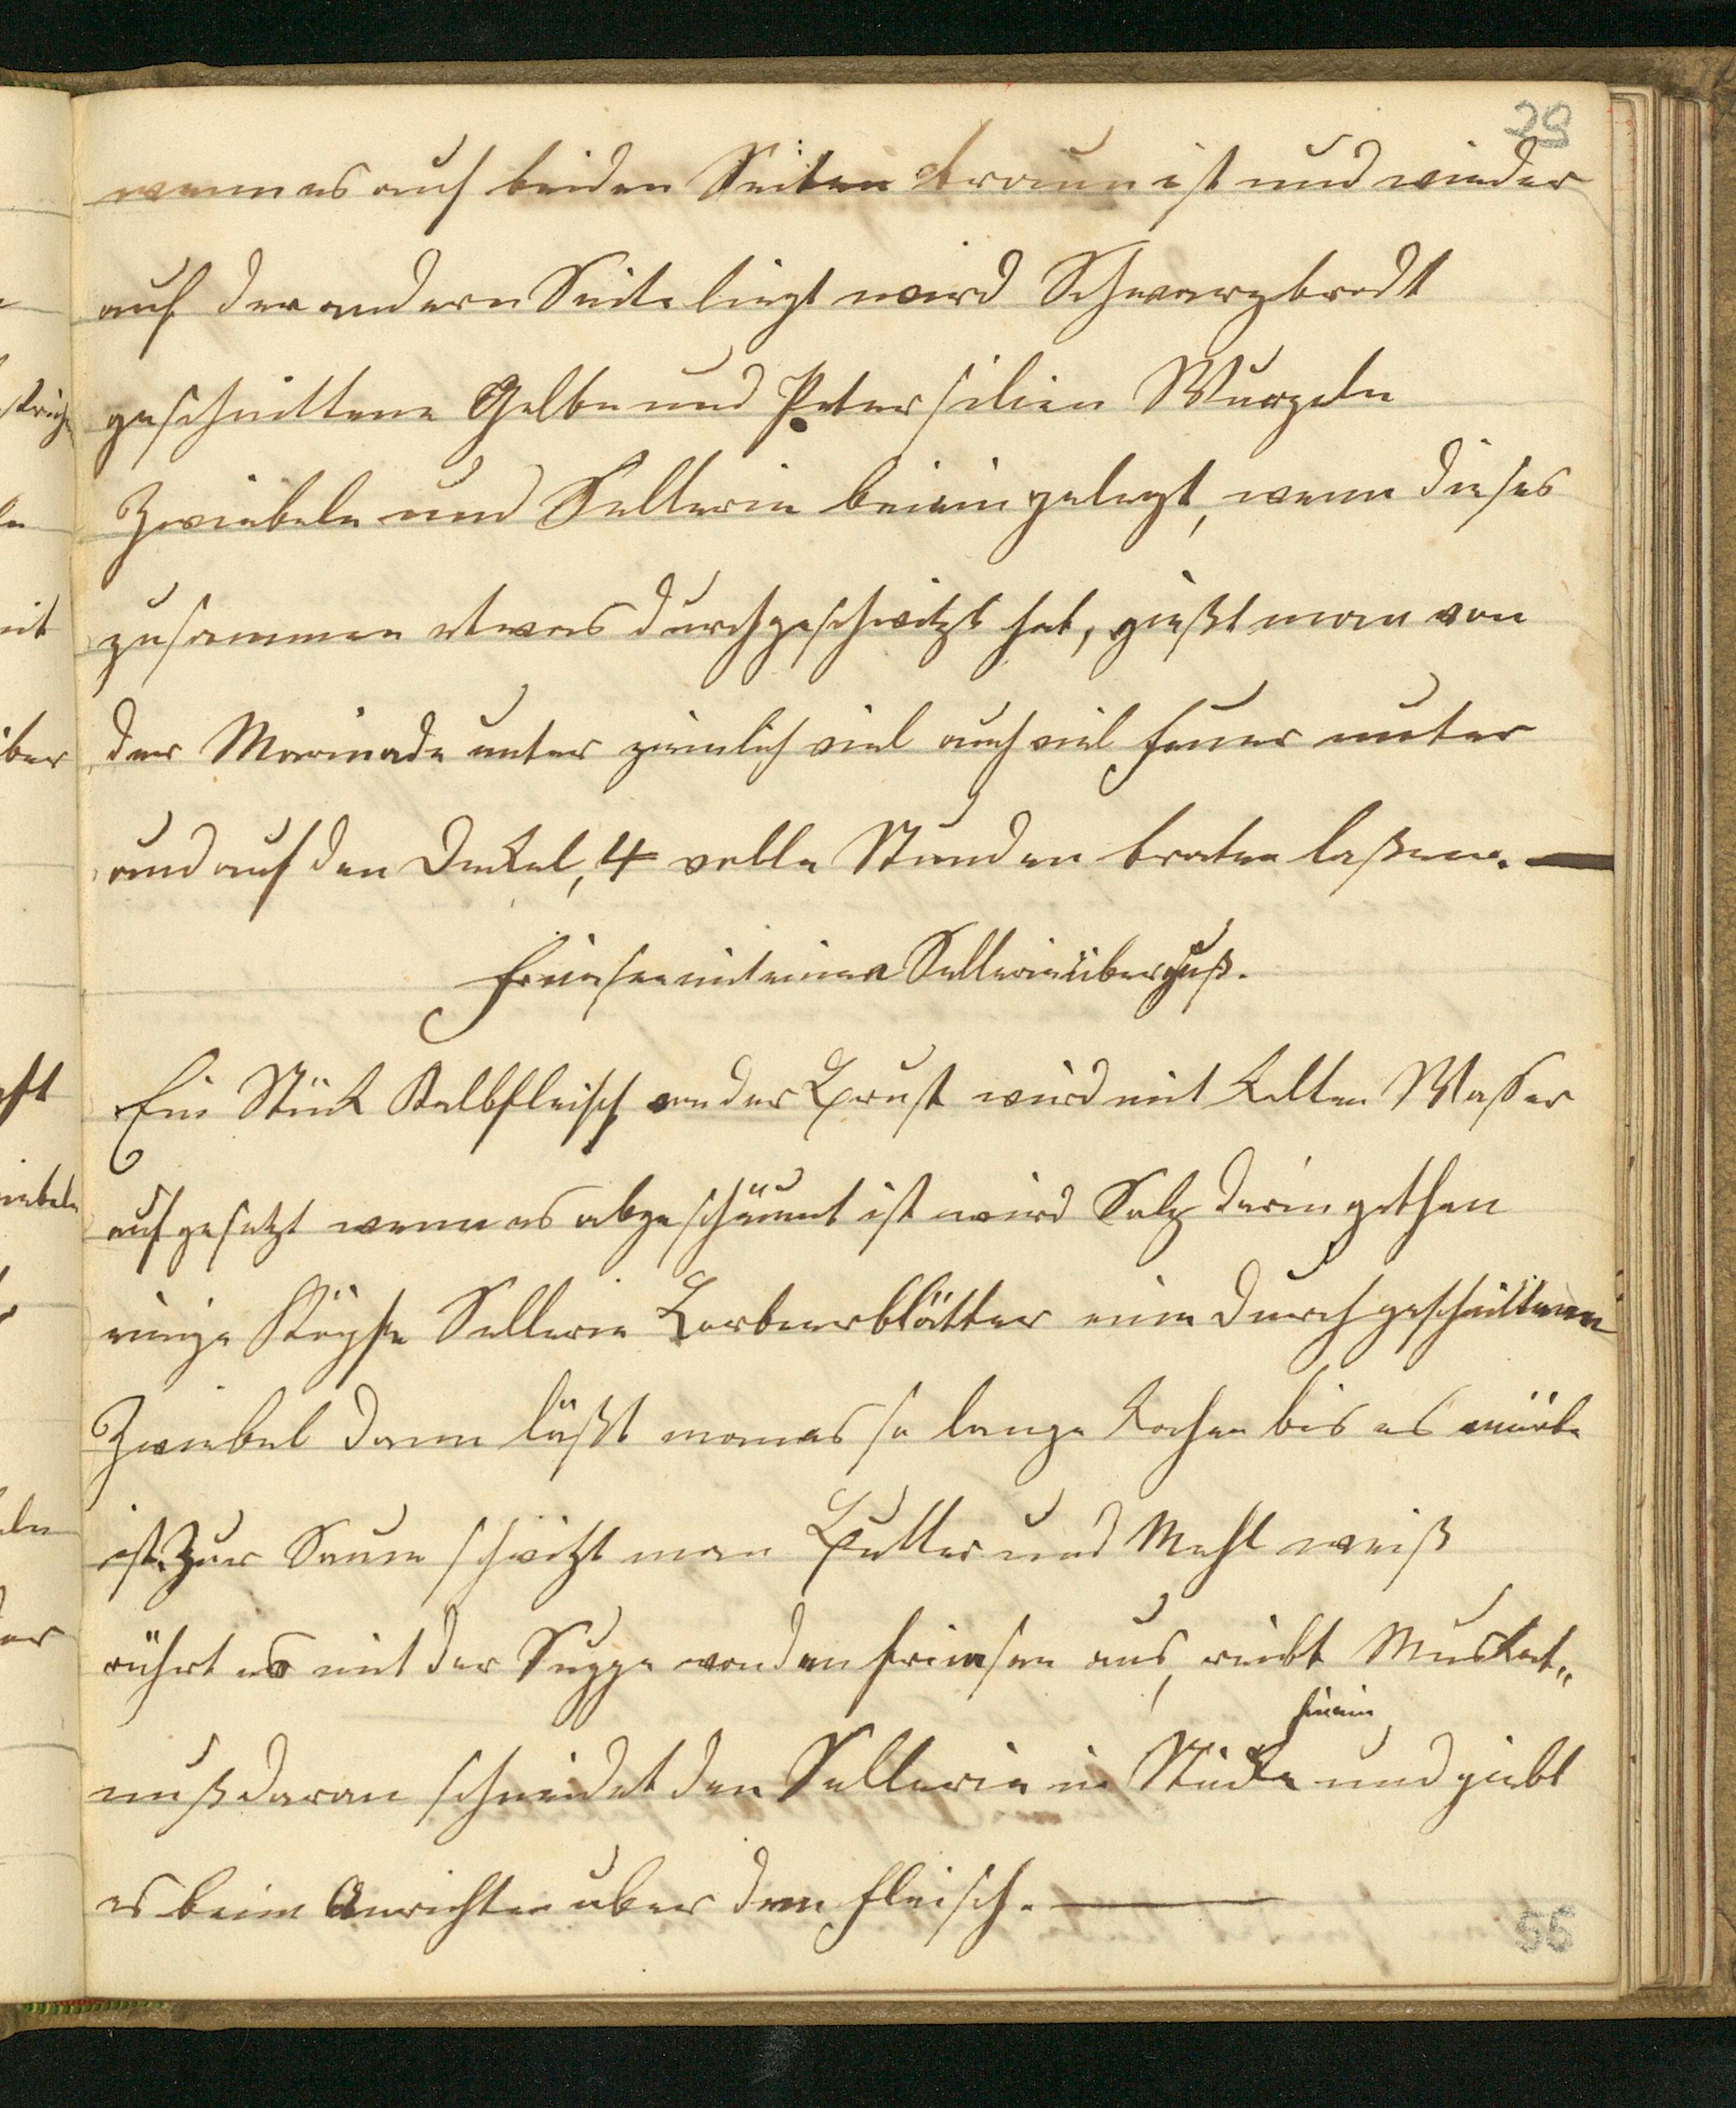 29
wenn es auf beiden Seiten braun ist und wieder
auf der andern Seite liegt wird Schwarzbrodt
geschnittene Gelbe und Petersilien Wurzeln
Zwiebeln und Sellerie beiein gelegt, wenn dieses
zusammen etwas durchgeschwitzt hat, gießt man von
der Marinade unter ziemlich viel auch viel Feuer unter
und auf den Dekel, 4 volle Stunden braten laßen.
mit einen Sellerieüberguß.
Ein Stück Kalbfleisch von der Brust wird mit kalten Waßer
aufgesetzt wenn es abgeschäumt ist wird Salz darin gethan
einige Köpfe Sellerie Lorbeerblätter eine durchgeschnittene
Zwiebel dann läßt man es so lange kochen bis es mürbe
ist. Zur Sauce schwitzt man Butter und Mehl weiß
rührt es mit der Suppe von den aus, reibt Muskat„
hinein
nuß daran schneidet den Sellerie in Stücke und giebt
es beim Anrichten über dem Fleisch.
56
strich
ln
mit
über
iebeln